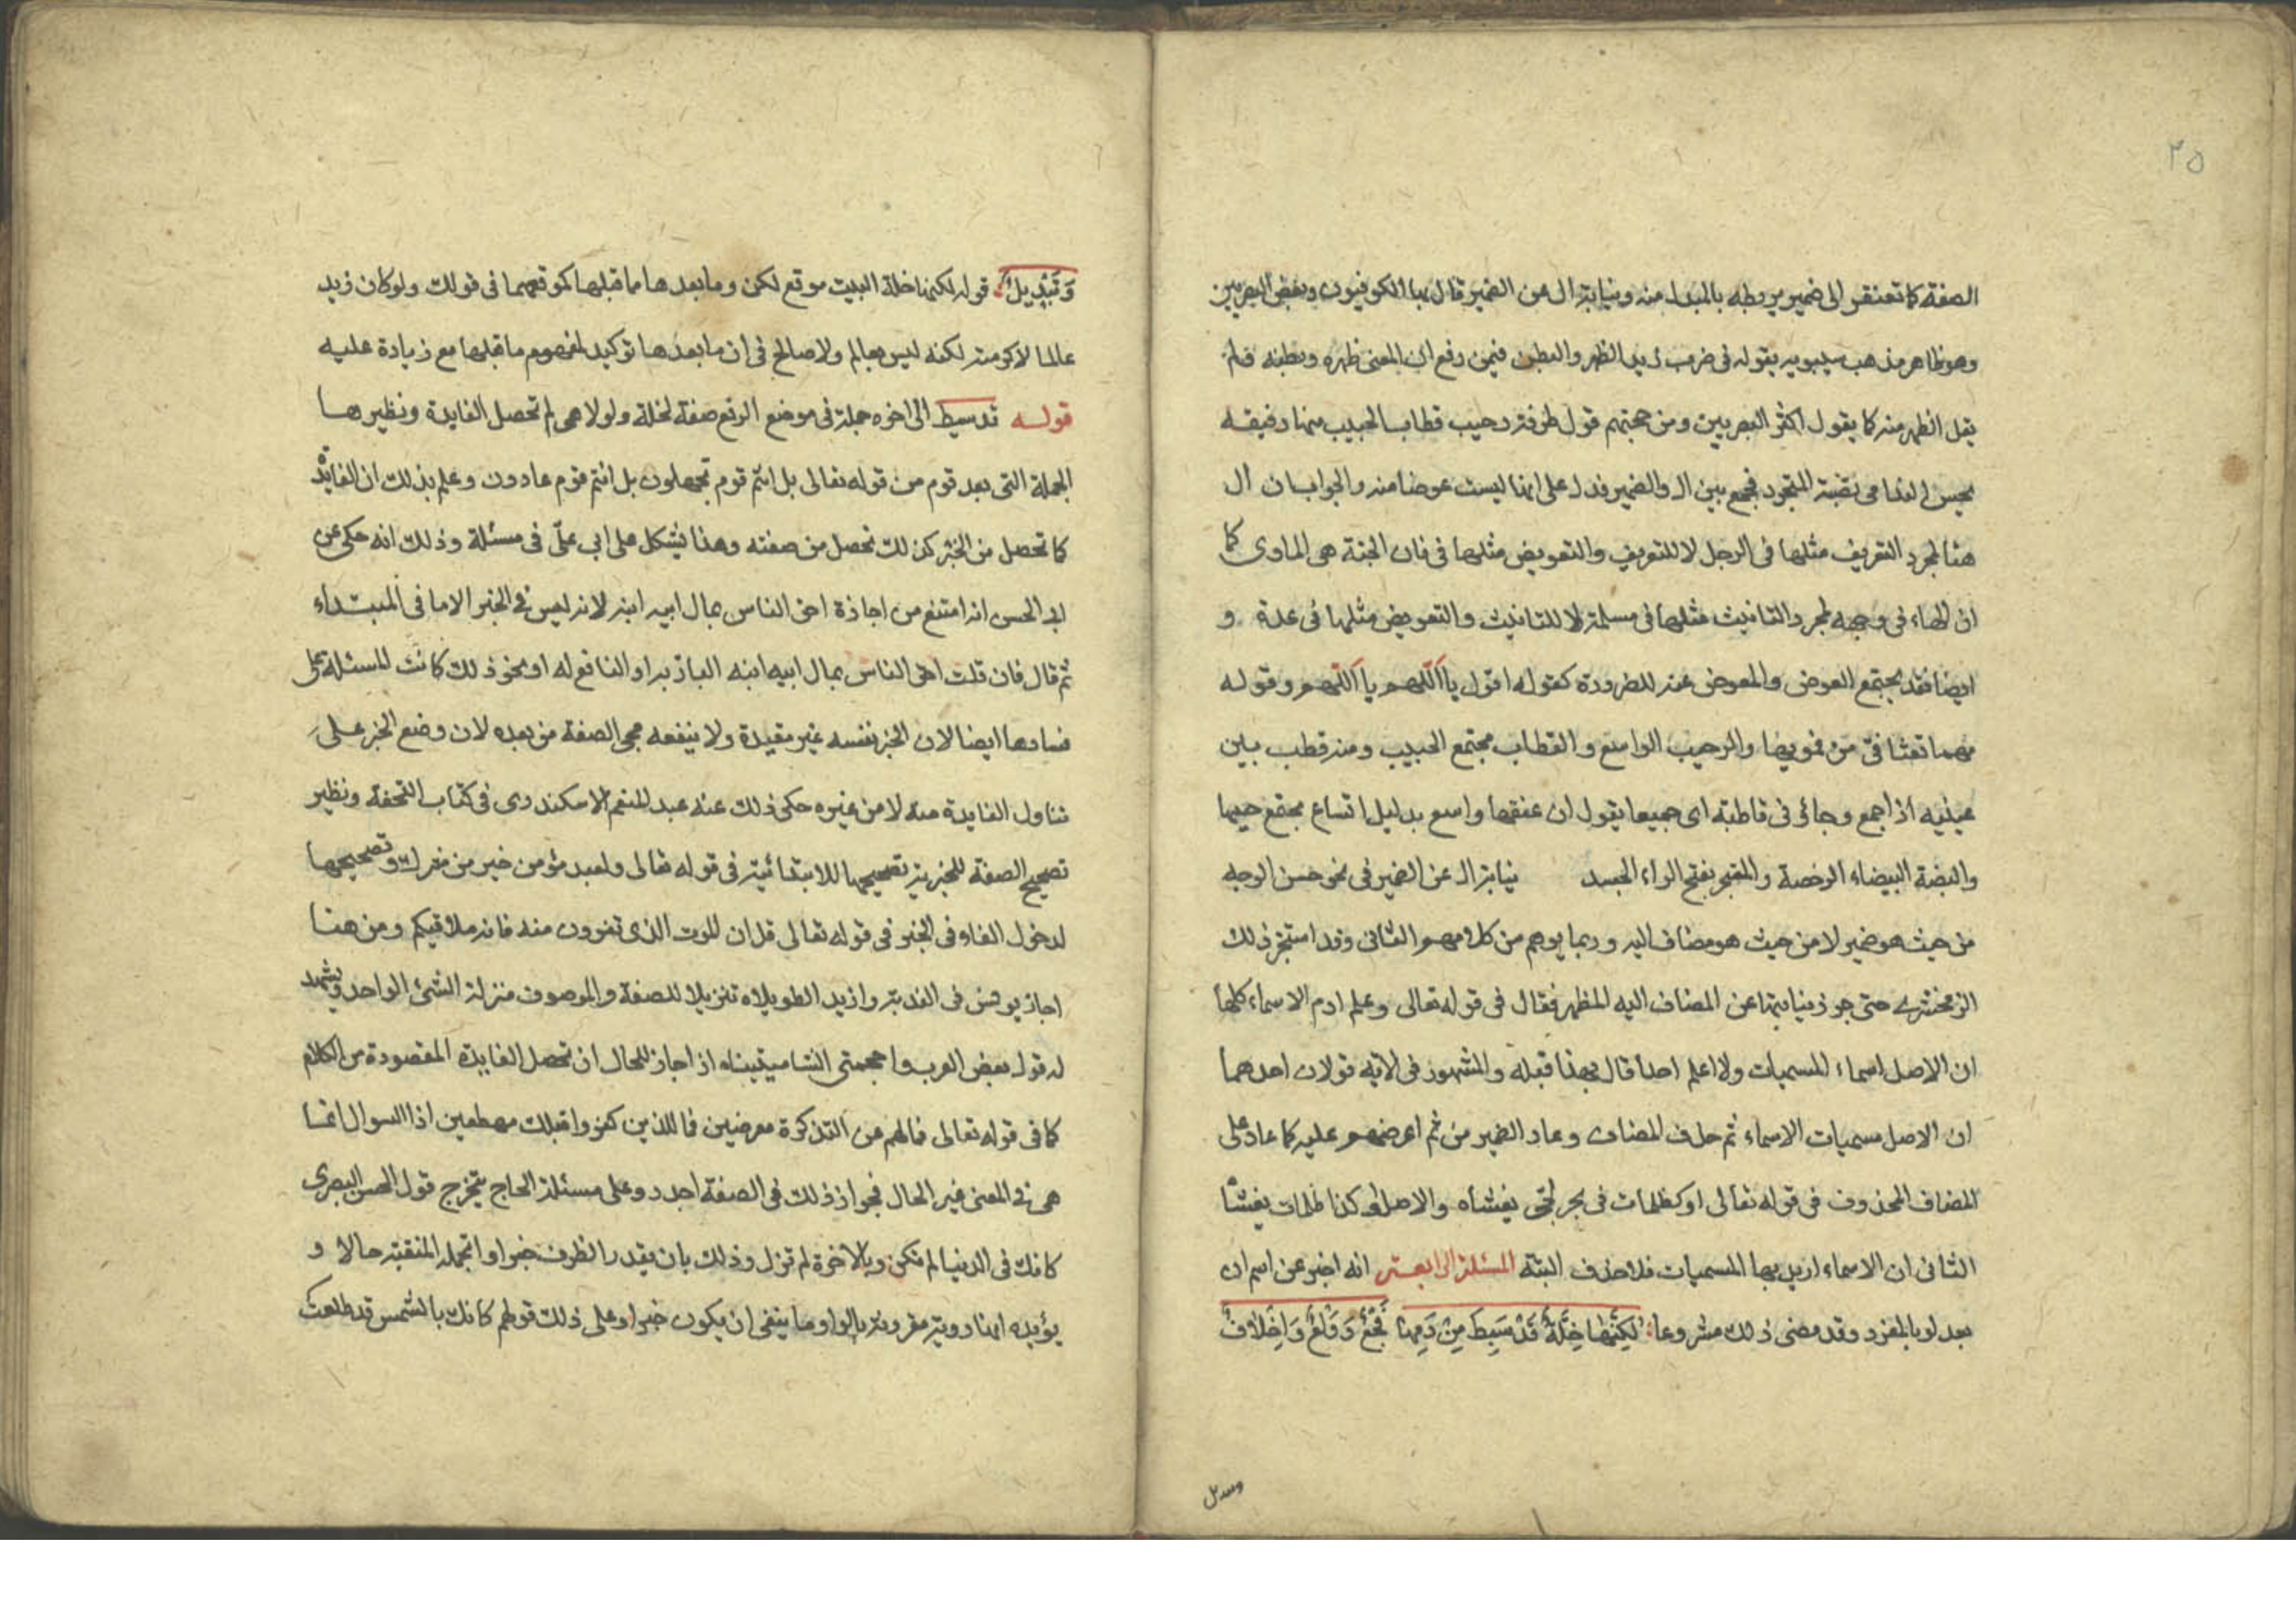 ٢٥
الصفة كما تفتقر الى ضمير يربطه بالمبدل منه ونيابة ال عن الضمير قال بها الكوفيون وبعض البصريين
وهو ظاهر مذهب سيبويه بقوله فى ضرب زيد الظهر والبطن فيمن رفع ان المعنى ظهره وبطنه فلم
يقل الظهر منه كما يقول اكثر البصريين ومن حجتهم قول طرفة رحيب قطاب الجيب منها رفيقه
بجس الندامى بضة المتجرد فجمع بين ال والضمير فدل على انها ليست عوضا منه والجواب ان ال
هنا لمجرد التعريف مثلها فى الرجل لا للتعريف والتعويض مثلها فى فان الجنة هى الماوى كما
ان الهاء فى وجهه لمجرد التانيث مثلها فى مسلمة لا للتانيث والتعويض مثلها فى عدة و
ايضا فقد يجتمع العوض والمعوض عنه للضرورة كقوله اقول يا اللهم يا اللهم وقوله
هما تفثا فى من فمويهما والرحيب الواسع والقطاب مجتمع الجيب ومنه قطب بين
عينيه اذا جمع وجاؤ فى قاطبة اى جميعا يقول ان عنقها واسع بدليل اتساع مجتمع جيبها
والبضة البيضاء الرخصة والمتجرد بفتح الراء الجسد نيابة ال عن الضمير فى نحو حسن الوجه
من حيث هو ضمير لا من حيث هو مضاف اليه وربما يوهم من كلامهم الثانى وقد استجز ذلك
الزمخشرى حتى جوز نيابتها عن المضاف اليه المظهر فقال فى قوله تعالى وعلم ادم الاسماء كلها
ان الاصل اسماء المسميات ولا اعلم احدا قال بهذا قبله والمشهور فى الاية قولان احدهما
ان الاصل مسميات الاسماء ثم حذف المضاف وعاد الضمير من ثم اعرضهم عليه كما عاد على
المضاف المحذوف فى قوله تعالى او كظلمات فى بحر لجى يغشاه والاصل او كذا ظلمات يغشا
الثانى ان الاسماء اريد بها المسميات فلا حذف البتة المسئلة الرابعة انه اخبر عن اسم ان
بعد لو بالمفرد وقد مضى ذلك مشروعا لَكِنَّهَا خِلَّةٌ قَدْ سِيطَ مِنْ دَمِهَا فَجْعٌ وَوَلْعٌ وَاِخْلَافٌ
وتبديل
وَتَبْدِيلُ قوله لكنها خلة البيت موقع لكن وما بعدها مما قبلها كموقعهما فى قولك ولو كان زيد
عالما لاكرمته لكنه ليس بعالم ولا صالح فى ان ما بعدها توكيد لمفهوم ما قبلها مع زيادة عليه
قوله قد سيط الى اخره جملة فى موضع الرفع صفة لخلة ولولا هى لم تحصل الفايدة ونظيرها
الجملة التى بعد قوم من قوله تعالى بل انتم قوم تجهلون بل انتم قوم عادون وعلم بذلك ان الفايدة
كما تحصل من الخبر كذلك تحصل من صفته وهذا يشكل على ابى علىّ فى مسئلة وذلك انه حكى عن
ابى الحسن انه امتنع من اجازة احق الناس بمال ابيه ابنه لانه ليس فى الخبر الا ما فى المبتداء
ثم قال فان قلت احق الناس بمال ابيه ابنه الباز به او النافع له او نحو ذلك كانت المسئلة على
فسادها ايضا لان الخبر بنفسه غير مفيدة ولا ينفعه مجى الصفة من بعده لان وضع الخبر على
تناول الفايدة منه لا من غيره حكى ذلك عنه عبد المنعم الاسكندرى فى كتاب التحفة ونظير
تصحيح الصفة للخبرية تصحيحها للابتدائية فى قوله تعالى ولعبد مؤمن خير من مشرك وتصحيحها
لدخول الفاء فى الخبر فى قوله تعالى قل ان الموت الذى تفرون منه فانه ملاقيكم ومن هنا
اجاز يونس فى الندبة وازيد الطويلاه تنزيلا للصفة والموصوف منزلة الشئ الواحد ويشهد
له قول بعض العرب وا جمجمتى الشاميتيناه اذ اجاز للحال ان تحصل الفايدة المقصودة من الكلام
كما فى قوله تعالى فما لهم عن التذكرة معرضين فما للذين كفروا قبلك مهطعين اذ السوال انما
هى فى المعنى غير الحال فجواز ذلك فى الصفة اجدر وعلى مسئلة الحاج يتخرج قول الحسن البصرى
كانك فى الدنيا لم تكن وبالاخرة لم تزل وذلك بان يقدر الظرف خبرا والجملة المنفية حالا و
يؤيده انها رويت مقرونة بالواو وما ينفى ان يكون خبرا وعلى ذلك قولهم كانك بالشمس قد طلعت